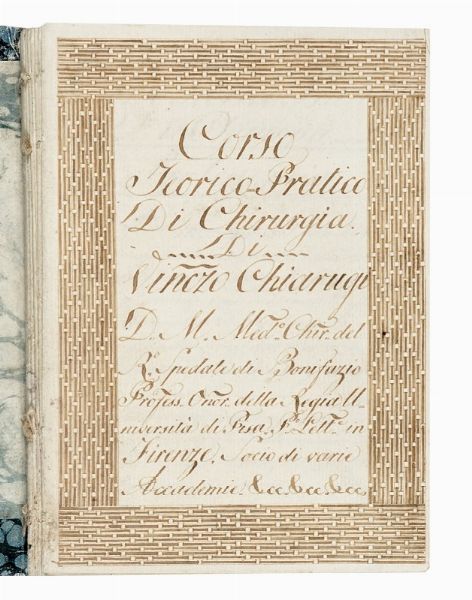 Corso
Teorico-Pratico
Di Chirurgia.
Di
Vinc̄zo Chiarugi
D. M. Medº. Chir. del
Rº. Spedale di Bonifazio
Profess. Onor. della Regia U=
niversità di Pisa, Pº. Lettº. in
Firenze, Socio di varie
Accademie. &c. &c. &c.